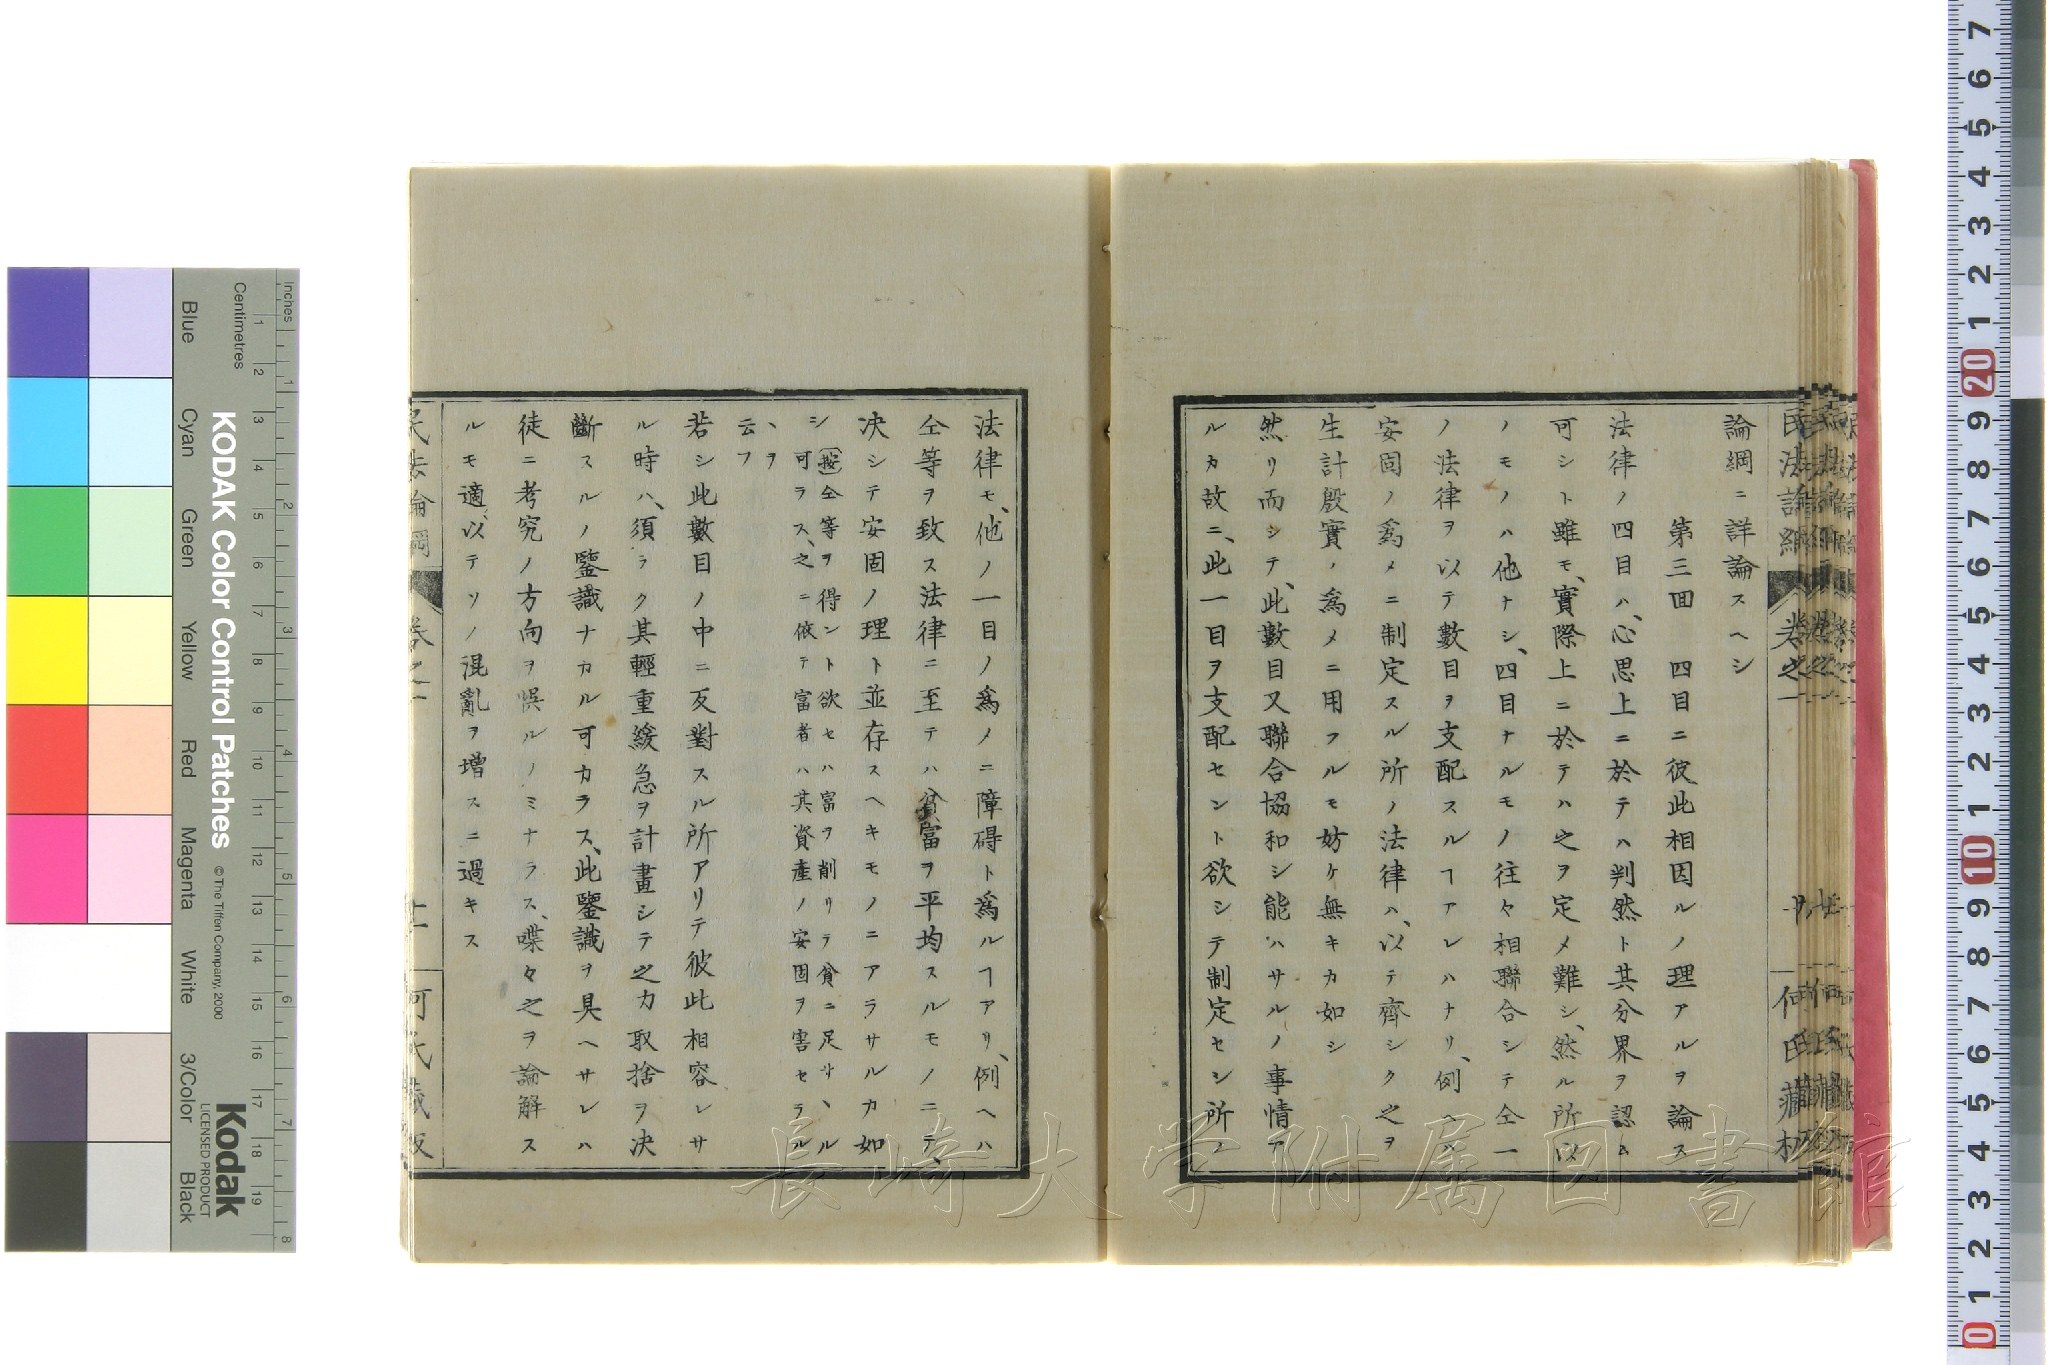 論綱ニ詳論スヘシ
第三囬 四目ニ彼此相因ルノ理アルヲ論ス
法律ノ四目ハ、心思上ニ於テハ判然ト其分界ヲ認ム
可シト雖モ、實際上ニ於テハ之ヲ定メ難シ、然ル所以
ノモノハ他ナシ、四目ナルモノ往々相聯合シテ仝一
ノ法律ヲ以テ數目ヲ支配スルヿアレハナリ、例ヘハ
安固ノ爲メニ制定スル所ノ法律ハ、以テ齊シク之ヲ
生計殷實ノ爲メニ用フルモ妨ケ無キカ如シ
然リ而シテ、此數目又聯合協和シ能ハサルノ事情ア
ルカ故ニ、此一目ヲ支配セント欲シテ制定セシ所ノ
法律モ、他ノ一目ノ爲ノニ障碍ト爲ルヿアリ、例ヘハ
仝等ヲ致ス法律ニ至テハ貧富ヲ平均スルモノニテ、
决シテ安固ノ理ト並存スヘキモノニアラサルカ如
シ
按仝等ヲ得ント欲セハ富ヲ削リテ貧ニ足サヽル
可ラス、之ニ依テ富者ハ其資產ノ安固ヲ害セラル
ヽヲ
云フ
若シ此數目ノ中ニ反對スル所アリテ彼此相容レサ
ル時ハ、須ラク其輕重緩急ヲ計畫シテ之カ取捨ヲ决
斷スルノ鑒識ナカル可カラス、此鑒識ヲ具ヘサレハ
徒ニ考究ノ方向ヲ悞ルノミナラス、喋々之ヲ論解ス
ルモ適以テソノ混亂ヲ增スニ過キス
民法論綱
卷之一
何氏藏板
長崎大学附属図書館
KODAK Color Control Patches
© The Tiffen Company, 2000
Kodak
LICENSED PRODUCT
Inches
Centimetres
Blue
Cyan
Green
Yellow
Red
Magenta
White
3/Color
Black